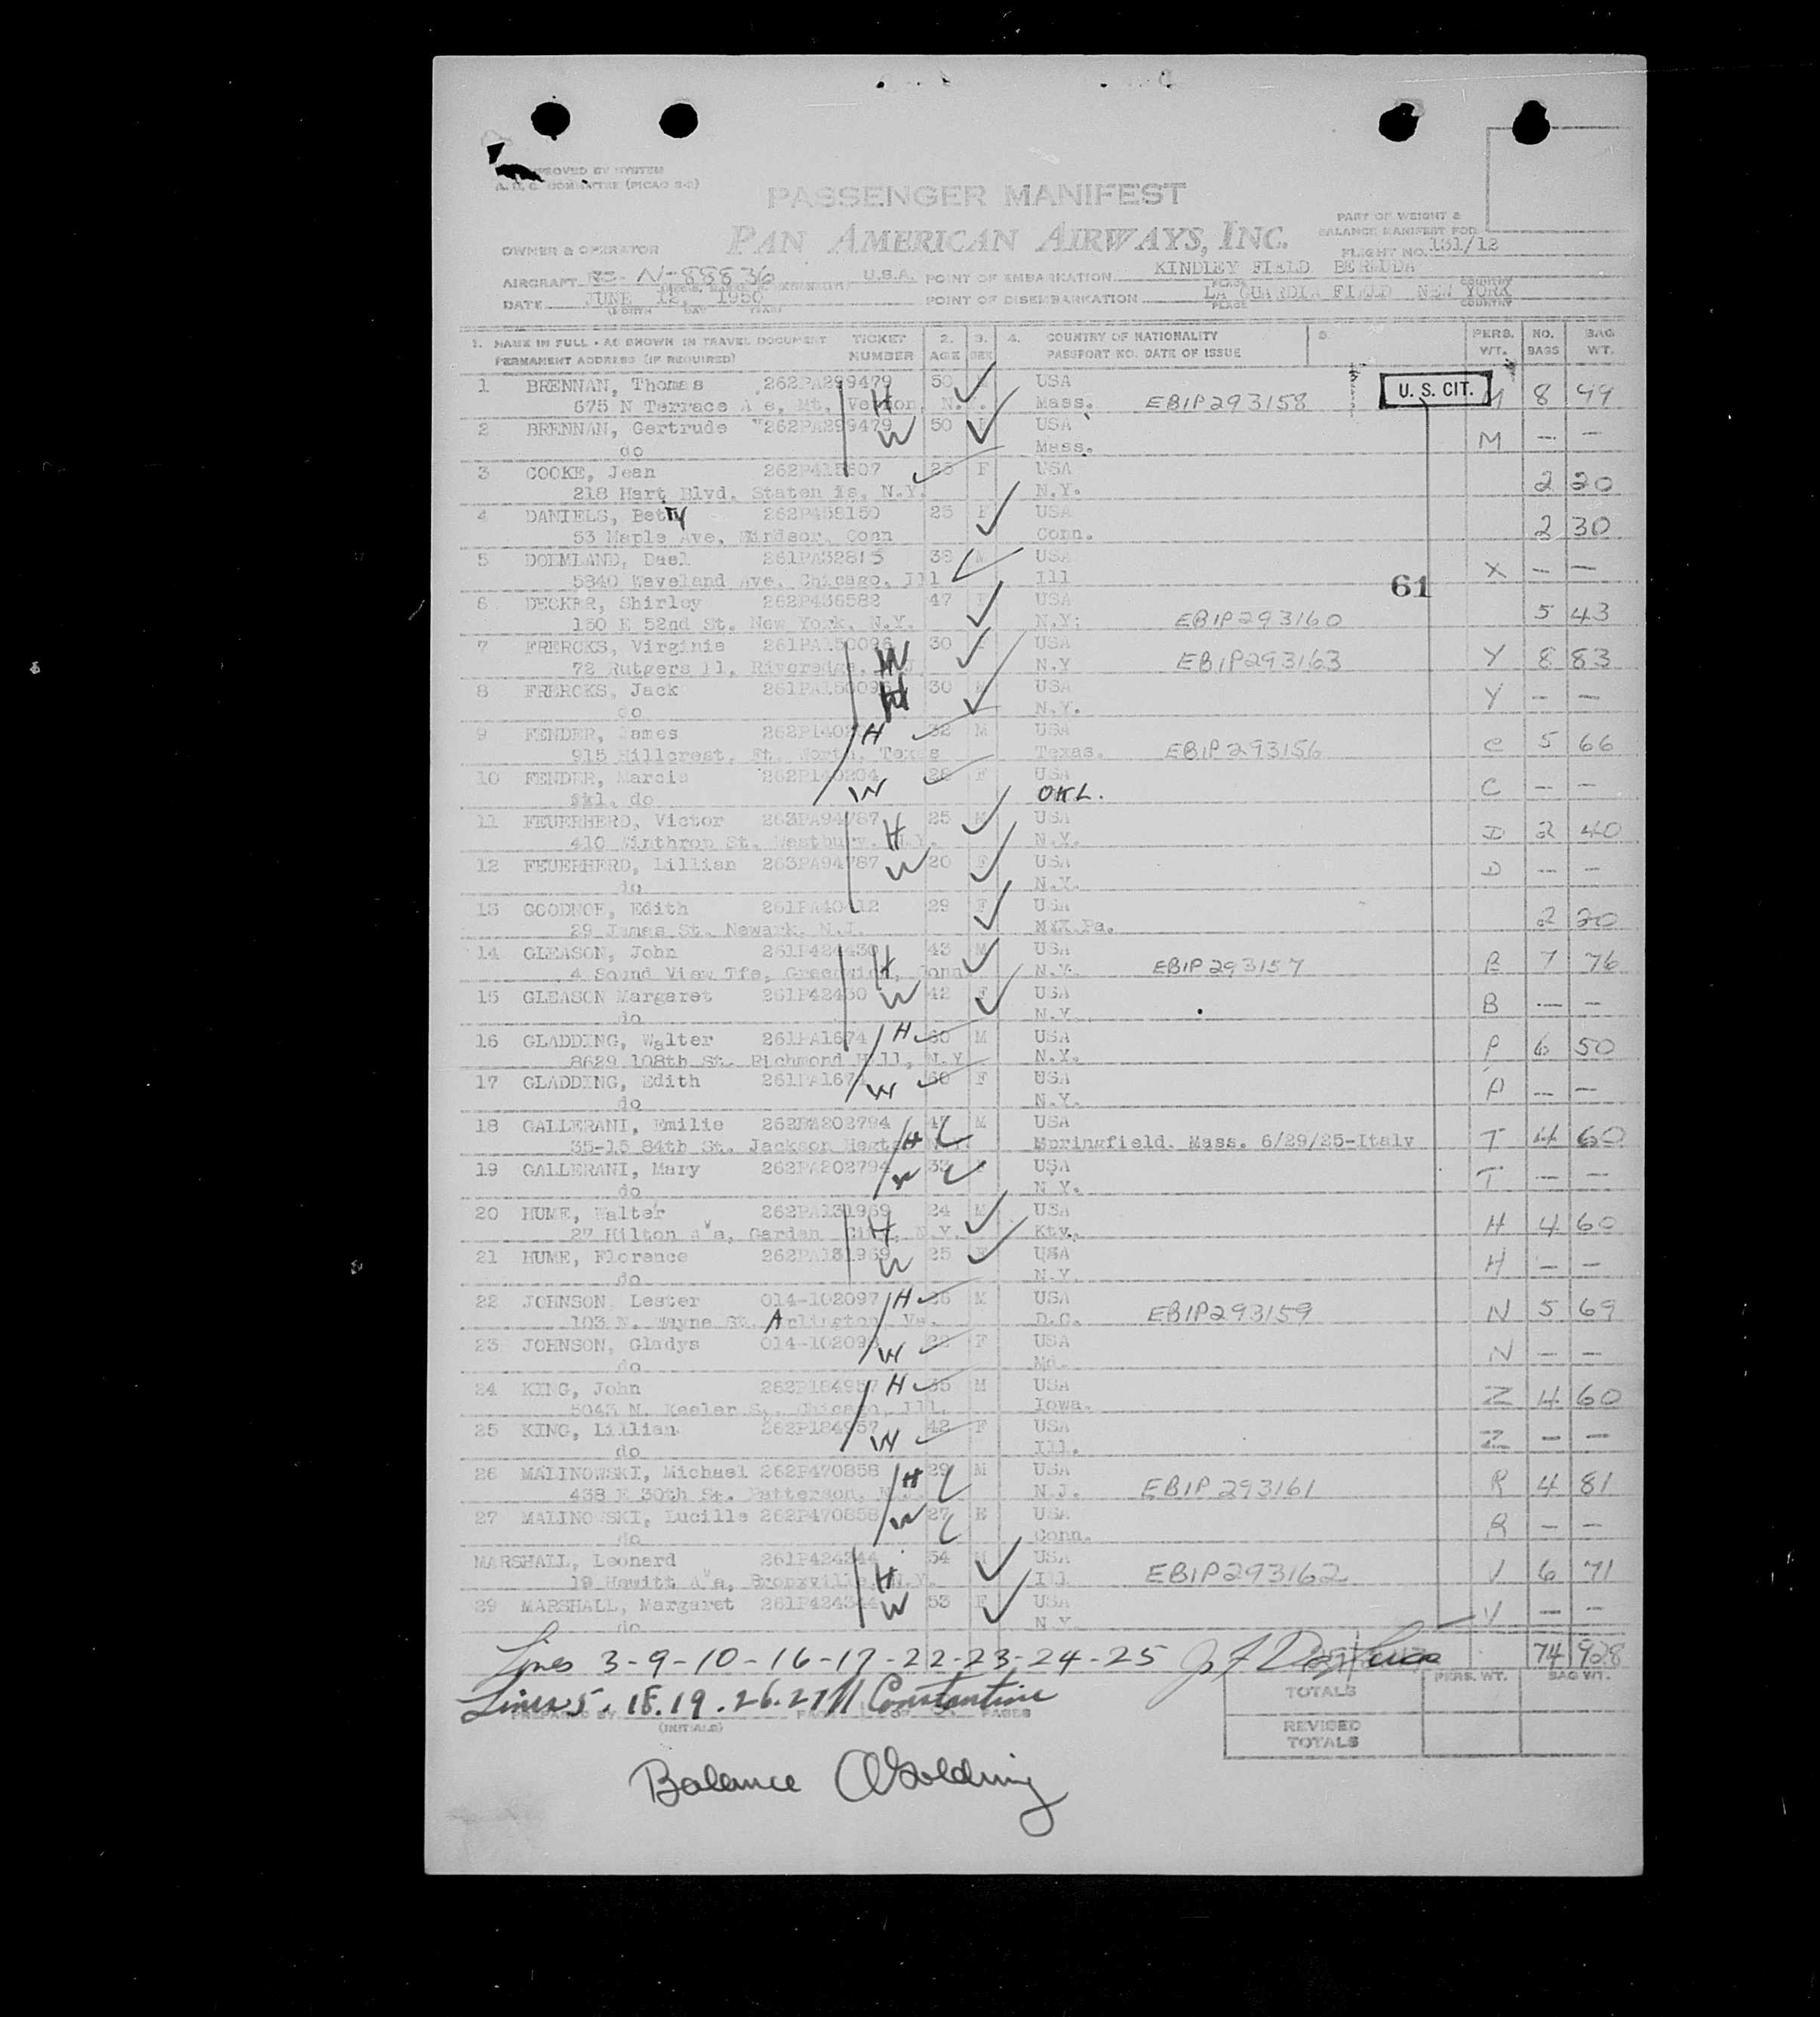 APPROVED BY SYSTEM
A. O. C. COMMITTEE (PICAO 2-2)
PASSENGER MANIFEST
PAN AMERICAN AIRWAYS, INC.
PART OF WEIGHT &
BALANCE MANIFEST FOR
OWNER & OPERATOR
FLIGHT NO. 131/12
AIRCRAFT N-88836 U.S.A. POINT OF EMBARKATION KINDLEY FIELD BERMUDA
DATE JUNE 12, 1950 POINT OF DISEMBARKATION LA GUARDIA FIELD NEW YORK
(MONTH DAY YEAR) PLACE COUNTRY
1. NAME IN FULL - AS SHOWN IN TRAVEL DOCUMENT TICKET 2. 3. 4. COUNTRY OF NATIONALITY 5. PERS. NO. BAG
PERMANENT ADDRESS (IF REQUIRED) NUMBER AGE SEX PASSPORT NO. DATE OF ISSUE WT. BAGS WT.
1 BRENNAN, Thomas 262PA299479 50 M USA U. S. CIT.
675 N Terrace Ave, Mt. Vernon, N.Y. H Mass. EBIP293158 M 8 99
2 BRENNAN, Gertrude 262PA299479 W 50 F USA
do Mass. M — —
3 COOKE, Jean 262P415607 25 F USA
218 Hart Blvd. Staten Is, N.Y. N.Y. 2 20
4 DANIELS, Betty 262P458150 25 F USA
53 Maple Ave, Windsor, Conn Conn. 2 30
5 DOEMLAND, Dael 261PA32815 38 M USA
5840 Waveland Ave. Chicago, Ill Ill X — —
61
6 DECKER, Shirley 262P436582 47 F USA
150 E 52nd St. New York, N.Y. N.Y. EBIP293160 5 43
7 FRERCKS, Virginia 261PA150096 W 30 F USA
72 Rutgers Pl, Riveredge, N.J. N.Y EBIP293163 Y 8 83
8 FRERCKS, Jack 261PA150096 H 30 M USA
do N.Y. Y — —
9 FENDER, James H 32 M USA
915 Hillcrest, Ft. Worth, Texas Texas. EBIP293156 C 5 66
10 FENDER, Marcia 262P140204 28 F USA
do W OKL. C — —
11 FEUERHERD, Victor 263PA94787 H 25 M USA
410 Winthrop St. Westbury, N.Y. N.Y. D 2 40
12 FEUERHERD, Lillian 263PA94787 W 20 F USA
do N.Y. D — —
13 GOODNOE, Edith 261PA40412 29 F USA
29 James St. Newark, N.J. Pa. 2 20
14 GLEASON, John 261P424430 H 43 M USA
4 Sound View Tfe, Greenwich, Conn N.Y. EBIP293157 B 7 76
15 GLEASON Margaret 261P42430 W 42 F USA
do N.Y. B — —
16 GLADDING, Walter 261PA1674 H 60 M USA
8629 108th St. Richmond Hill, N.Y N.Y. P 6 50
17 GLADDING, Edith 261PA1674 W 60 F USA
do N.Y. P — —
18 GALLERANI, Emilie 262PA202794 47 M USA
35-15 84th St. Jackson Hegts H Springfield. Mass. 6/29/25-Italy T 4 60
19 GALLERANI, Mary 262PA202794 W 33 F USA
do N.Y. T — —
20 HUME, Walter 262PA131969 H 24 M USA
27 Hilton Ave, Garden City, N.Y. Kty. H 4 60
21 HUME, Florence 262PA131969 W 25 F USA
do N.Y. H — —
22 JOHNSON, Lester 014-102097 H 26 M USA
103 N. Wayne St. Arlington, Va. D.C. EBIP293159 N 5 69
23 JOHNSON, Gladys 014-102098 W 22 F USA
do Md. N — —
24 KING, John 262P184957 H 55 M USA
5043 N. Keeler St. Chicago, Ill. Iowa. Z 4 60
25 KING, Lillian 262P184957 W 42 F USA
do Ill. Z — —
26 MALINOWSKI, Michael 262P470858 H 29 M USA
438 E 30th St. Patterson, N.J. N.J. EBIP293161 R 4 81
27 MALINOWSKI, Lucille 262P470858 W 27 F USA
do Conn. R — —
MARSHALL, Leonard 261P424344 H 54 M USA
19 Hewitt Ave, Bronxville, N.Y. Ill EBIP293162 V 6 71
29 MARSHALL, Margaret 261P424344 W 53 F USA
do N.Y. V — —
Lines 3-9-10-16-17-22-23-24-25 74 928
Lines 5. 18.19.26.27 Constantine
PREPARED BY (INITIALS) PAGE OF PAGES
TOTALS PERS. WT. BAG WT.
REVISED
TOTALS
Balance Golding